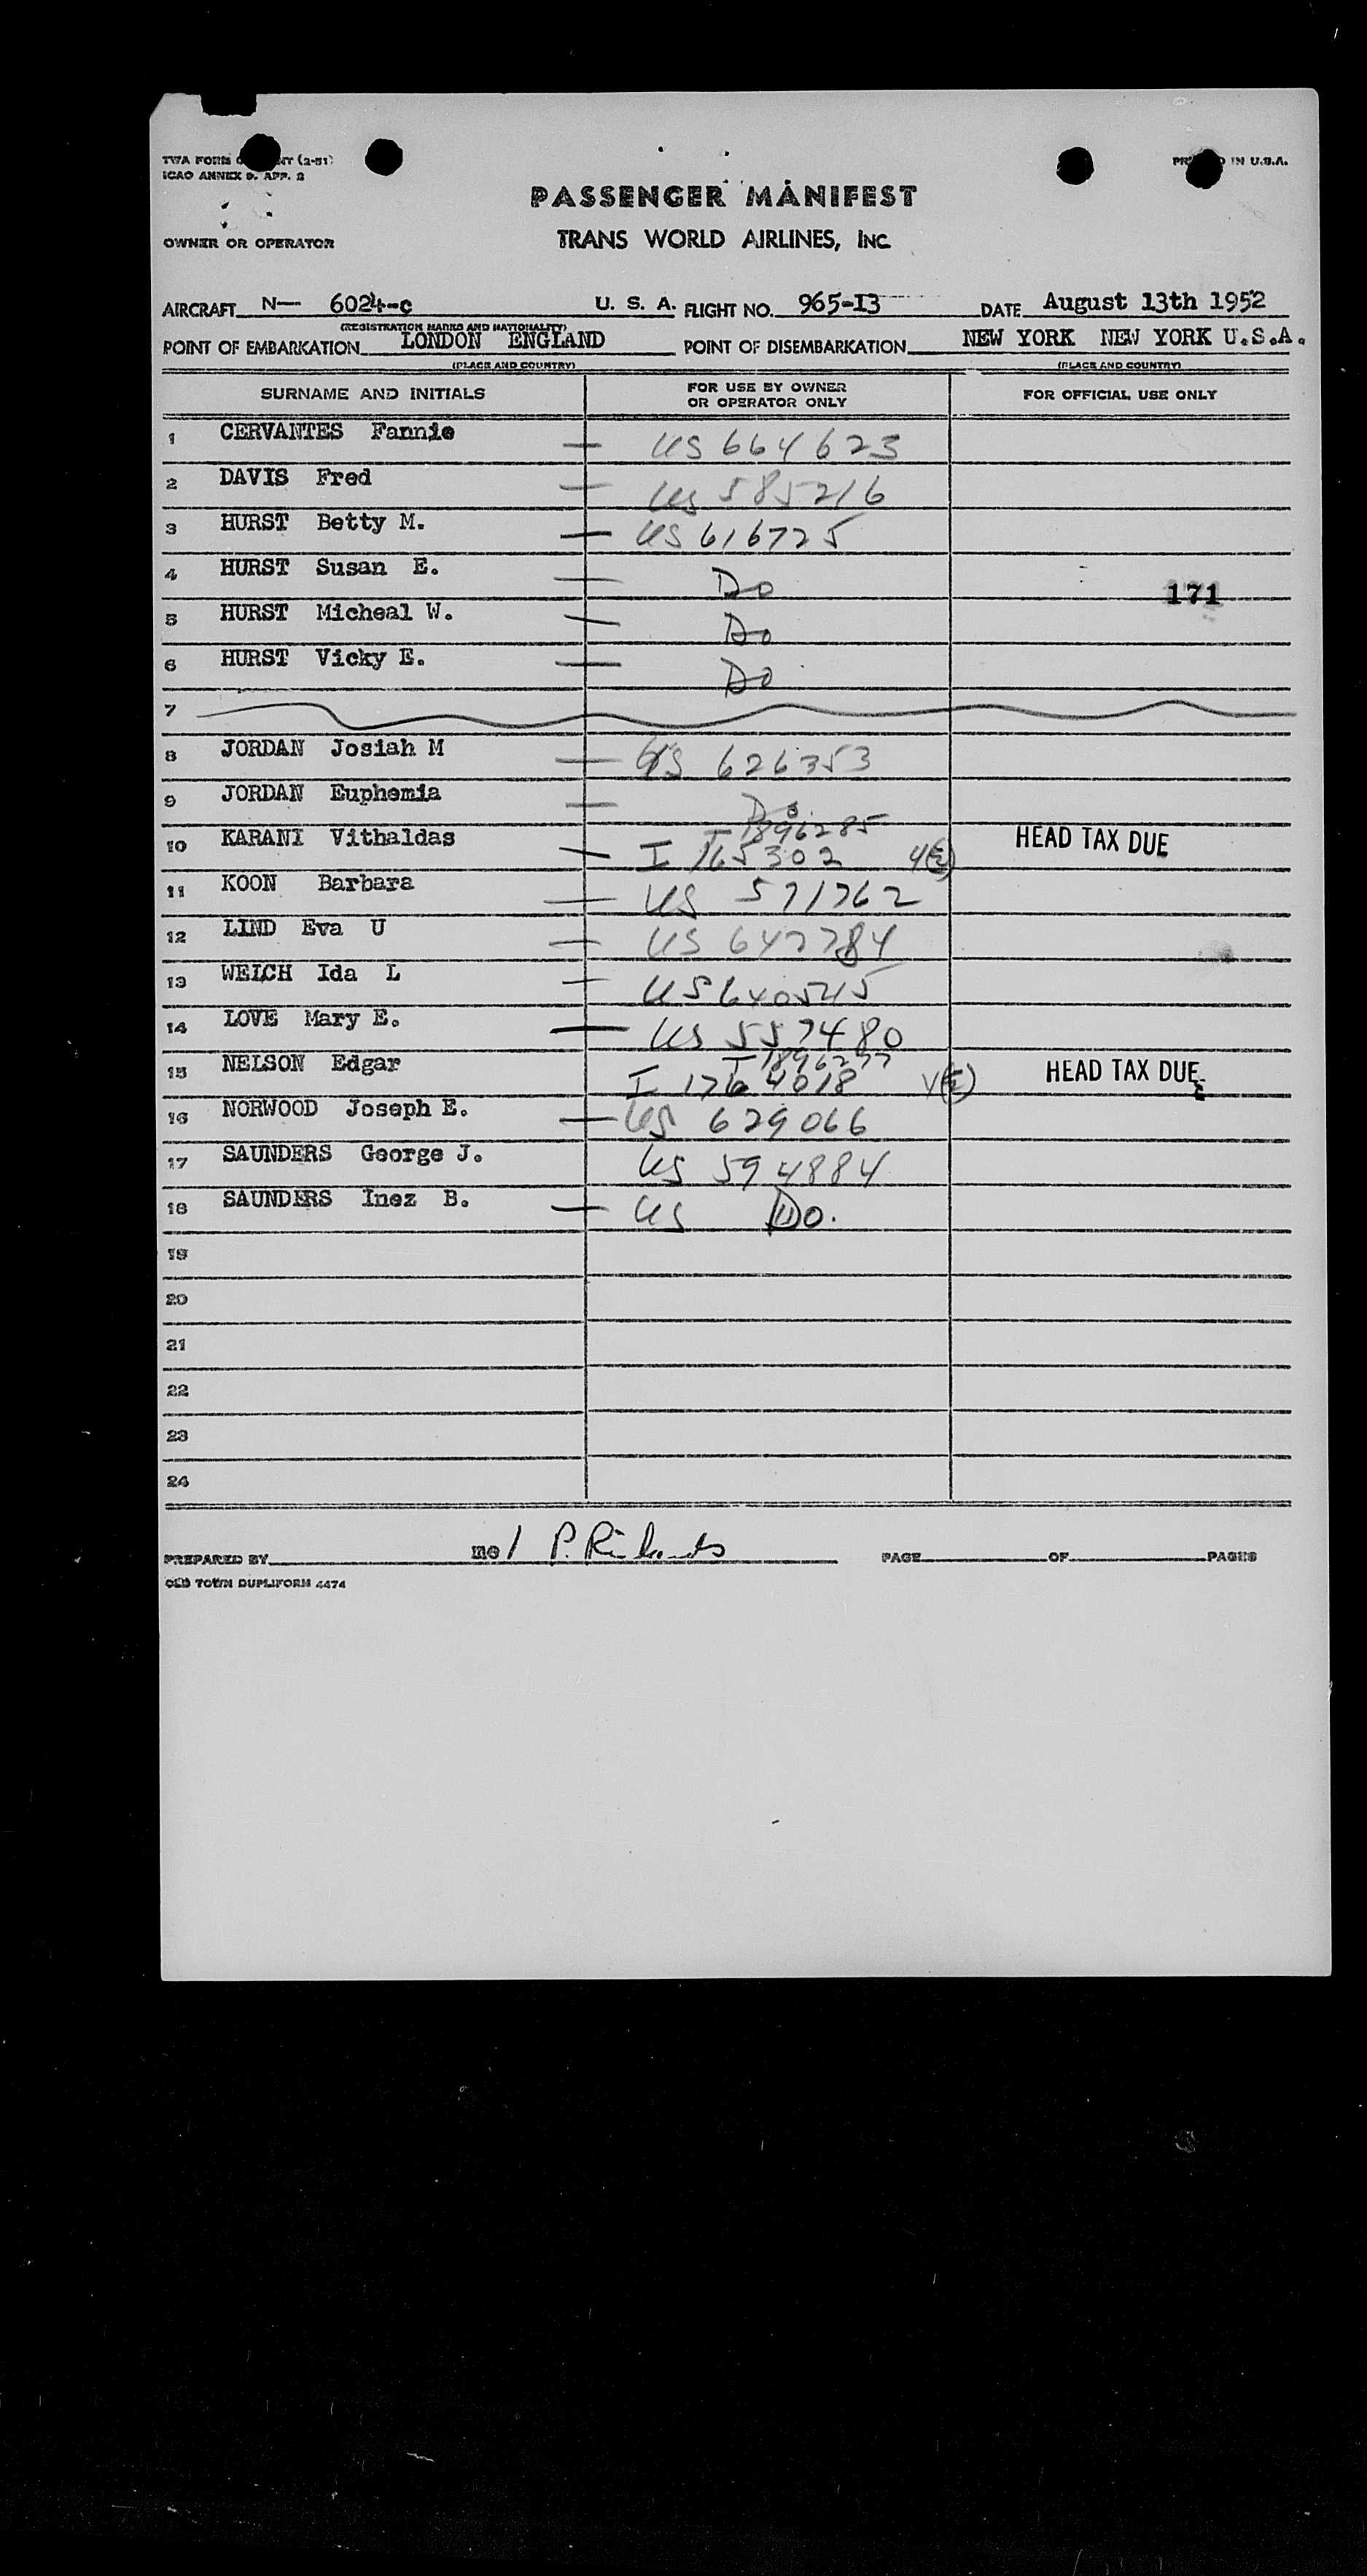 TWA FORM (2-51)
ICAO ANNEX 9. APP. 2
IN U.S.A.
PASSENGER MANIFEST
OWNER OR OPERATOR
TRANS WORLD AIRLINES, INC.
AIRCRAFT N— 6024-C U. S. A. FLIGHT NO. 965-13 DATE August 13th 1952
(REGISTRATION MARKS AND NATIONALITY)
POINT OF EMBARKATION LONDON ENGLAND POINT OF DISEMBARKATION NEW YORK NEW YORK U.S.A.
(PLACE AND COUNTRY) (PLACE AND COUNTRY)
SURNAME AND INITIALS FOR USE BY OWNER OR OPERATOR ONLY FOR OFFICIAL USE ONLY
1 CERVANTES Fannie — US 664623
2 DAVIS Fred — US 585216
3 HURST Betty M. — US 616725
4 HURST Susan E. — Do 171
5 HURST Micheal W. — Do
6 HURST Vicky E. — Do
7
8 JORDAN Josiah M — US 626353
9 JORDAN Euphemia — Do.
I 1896285
10 KARANI Vithaldas — I 165302 HEAD TAX DUE
11 KOON Barbara — US 571762
12 LIND Eva U — US 647784
13 WELCH Ida L — US 640545
14 LOVE Mary E. — US 557480
I 1896277
15 NELSON Edgar I 1764018 HEAD TAX DUE
16 NORWOOD Joseph E. — US 629066
17 SAUNDERS George J. US 594884
18 SAUNDERS Inez B. — US Do.
19
20
21
22
23
24
PREPARED BY mo/ P. Richards PAGE OF PAGES
OLD TOWN DUPLIFORM 4474